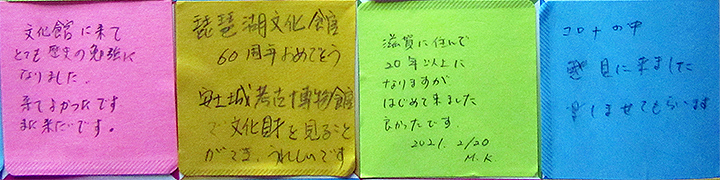 文化館に来て
とても歴史の勉強に
なりました。
来てよかったです
また来たいです。
琵琶湖文化館
60周年おめでとう
安土城考古博物館
で文化財を見ること
ができ、うれしいです
滋賀に住んで
20年以上に
なりますが
はじめて来ました
良かったです。
2021. 2/20
M.K
コロナの中
見に来ました
しませてもらいます